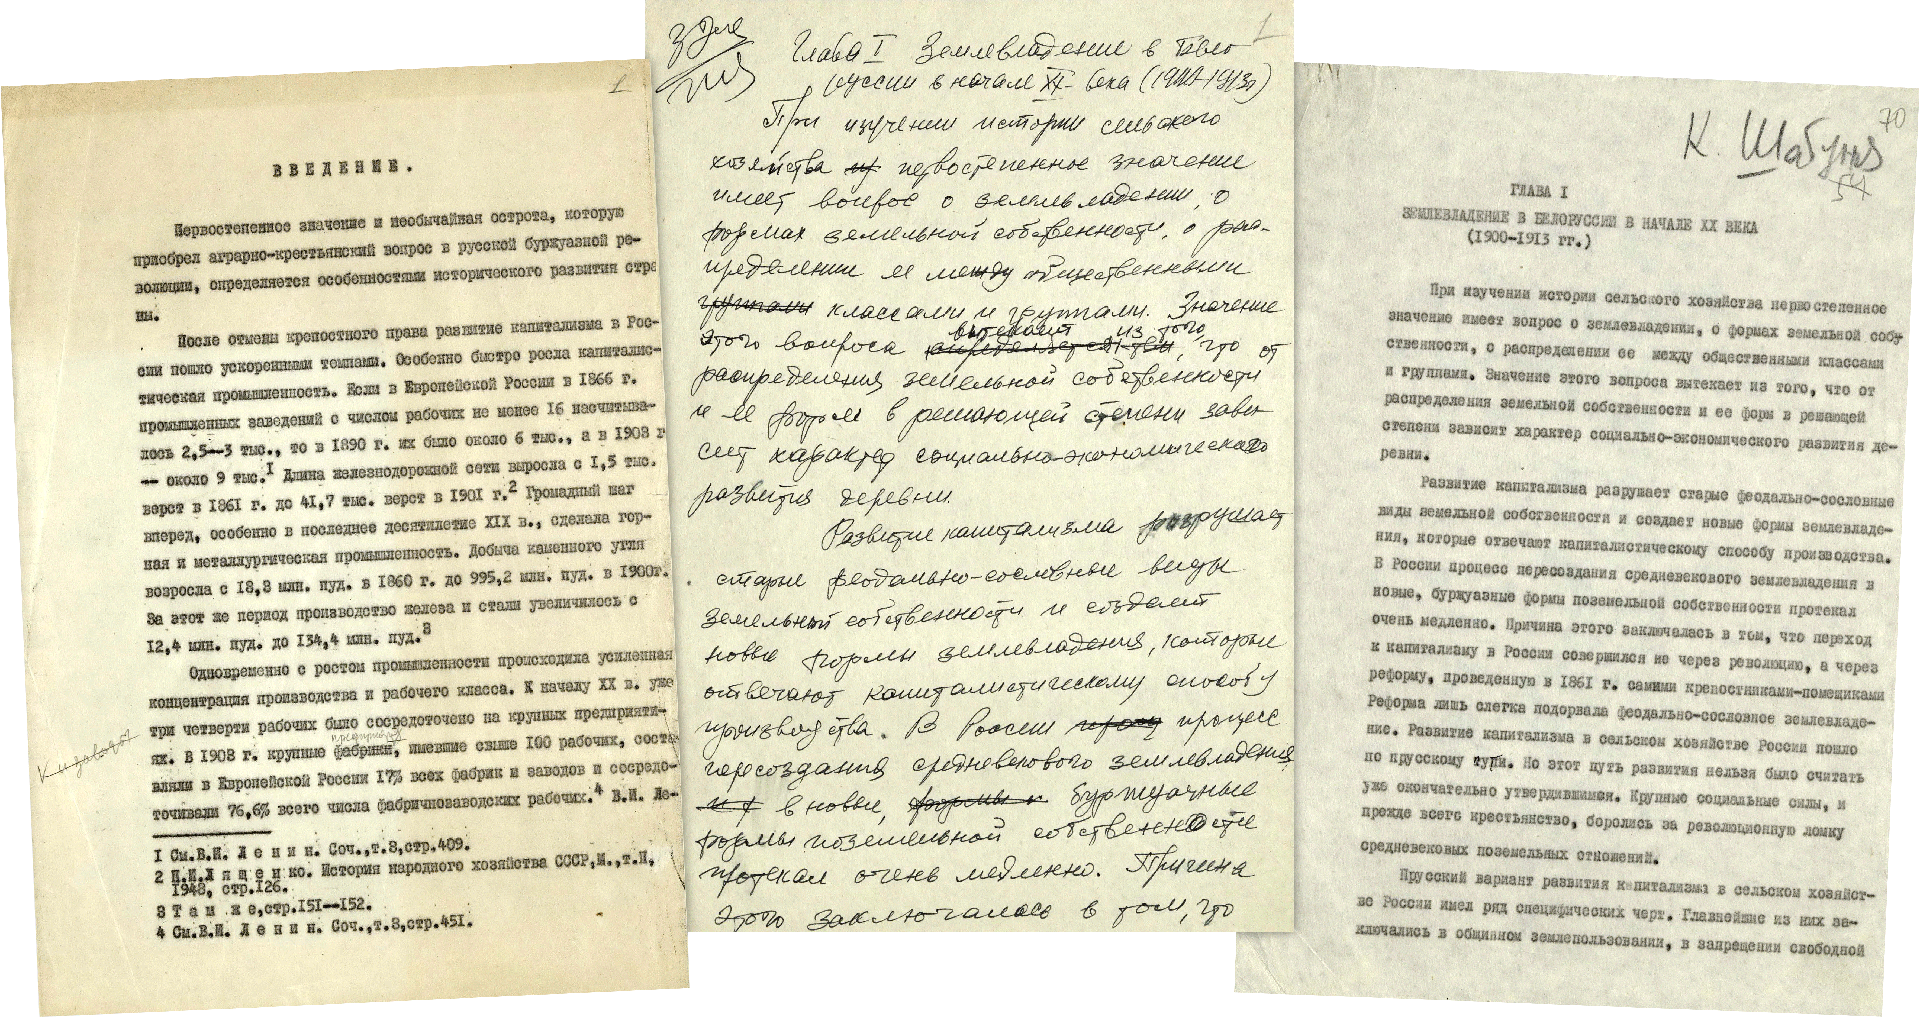 1
ВВЕДЕНИЕ.
Первостепенное значение и необычайная острота, которую
приобрел аграрно-крестьянский вопрос в русской буржуазной ре-
волюции, определяется особенностями исторического развития стра
ны.
После отмены крепостного права развитие капитализма в Рос-
сии пошло ускоренными темпами. Особенно быстро росла капиталис-
тическая промышленность. Если в Европейской России в 1866 г.
промышленных заведений с числом рабочих не менее 16 насчитыва-
лось 2,5—3 тыс., то в 1890 г. их было около 6 тыс., а в 1903 г
— около 9 тыс.1 Длина железнодорожной сети выросла с 1,5 тыс.
верст в 1861 г. до 41,7 тыс. верст в 1901 г.2 Громадный шаг
вперед, особенно в последнее десятилетие XIX в., сделала гор-
ная и металлургическая промышленность. Добыча каменного угля
возросла с 18,3 млн. пуд. в 1860 г. до 995,2 млн. пуд. в 1900г.
За этот же период производство железа и стали увеличилось с
12,4 млн. пуд. до 134,4 млн. пуд.3
Одновременно с ростом промышленности происходила усиленная
концентрация производства и рабочего класса. К началу XX в. уже
три четверти рабочих было сосредоточено на крупных предприяти-
предприятия
ях. В 1903 г. крупные фабрики, имевшие свыше 100 рабочих, соста
вляли в Европейской России 17% всех фабрик и заводов и сосредо-
точивали 76,6% всего числа фабричнозаводских рабочих.4 В.И. Ле-
1 См.В.И. Л е н и н. Соч.,т.3,стр.409.
2 П.И.Л я щ е н к о. История народного хозяйства СССР,М.,т.II,
1948, стр.126.
3 Т а м ж е,стр.151—152.
4 См.В.И. Л е н и н. Соч.,т.3,стр.451.
1
Глава I Землевладение в Бело
руссии в начале XX века (1900-1913гг)
При изучении истории сельского
хозяйства первостепенное значение
имеет вопрос о землевладении, о
формах земельной собственности, о рас-
пределении ее между общественными
группами классами и группами. Значение
вытекает из того
этого вопроса определяется тем, что от
распределения земельной собственности
и ее форм в решающей степени зави
сит характер социально-экономического
развития деревни.
Развитие капитализма разрушает
старые феодально-сословные виды
земельной собственности и создает
новые формы землевладения, которые
отвечают капиталистическому способу
производства. В России процесс
пересоздания средневекового землевладения
в новые, формы буржуазные
формы поземельной собственности
протекал очень медленно. Причина
этого заключалась в том, что
К. Шабуня
70
54
ГЛАВА I
ЗЕМЛЕВЛАДЕНИЕ В БЕЛОРУССИИ В НАЧАЛЕ XX ВЕКА
(1900-1913 гг.)
При изучении истории сельского хозяйства первостепенное
значение имеет вопрос о землевладении, о формах земельной соб-
ственности, о распределении ее между общественными классами
и группами. Значение этого вопроса вытекает из того, что от
распределения земельной собственности и ее форм в решающей
степени зависит характер социально-экономического развития де-
ревни.
Развитие капитализма разрушает старые феодально-сословные
виды земельной собственности и создает новые формы землевладе-
ния, которые отвечают капиталистическому способу производства.
В России процесс пересоздания средневекового землевладения в
новые, буржуазные формы поземельной собственности протекал
очень медленно. Причина этого заключалась в том, что переход
к капитализму в России совершился не через революцию, а через
реформу, проведенную в 1861 г. самими крепостниками-помещиками
Реформа лишь слегка подорвала феодально-сословное землевладе-
ние. Развитие капитализма в сельском хозяйстве России пошло
по прусскому пути. Но этот путь развития нельзя было считать
уже окончательно утвердившимся. Крупные социальные силы, и
прежде всего крестьянство, боролись за революционную ломку
средневековых поземельных отношений.
Прусский вариант развития капитализма в сельском хозяйст-
ве России имел ряд специфических черт. Главнейшие из них за-
ключались в общинном землепользовании, в запрещении свободной